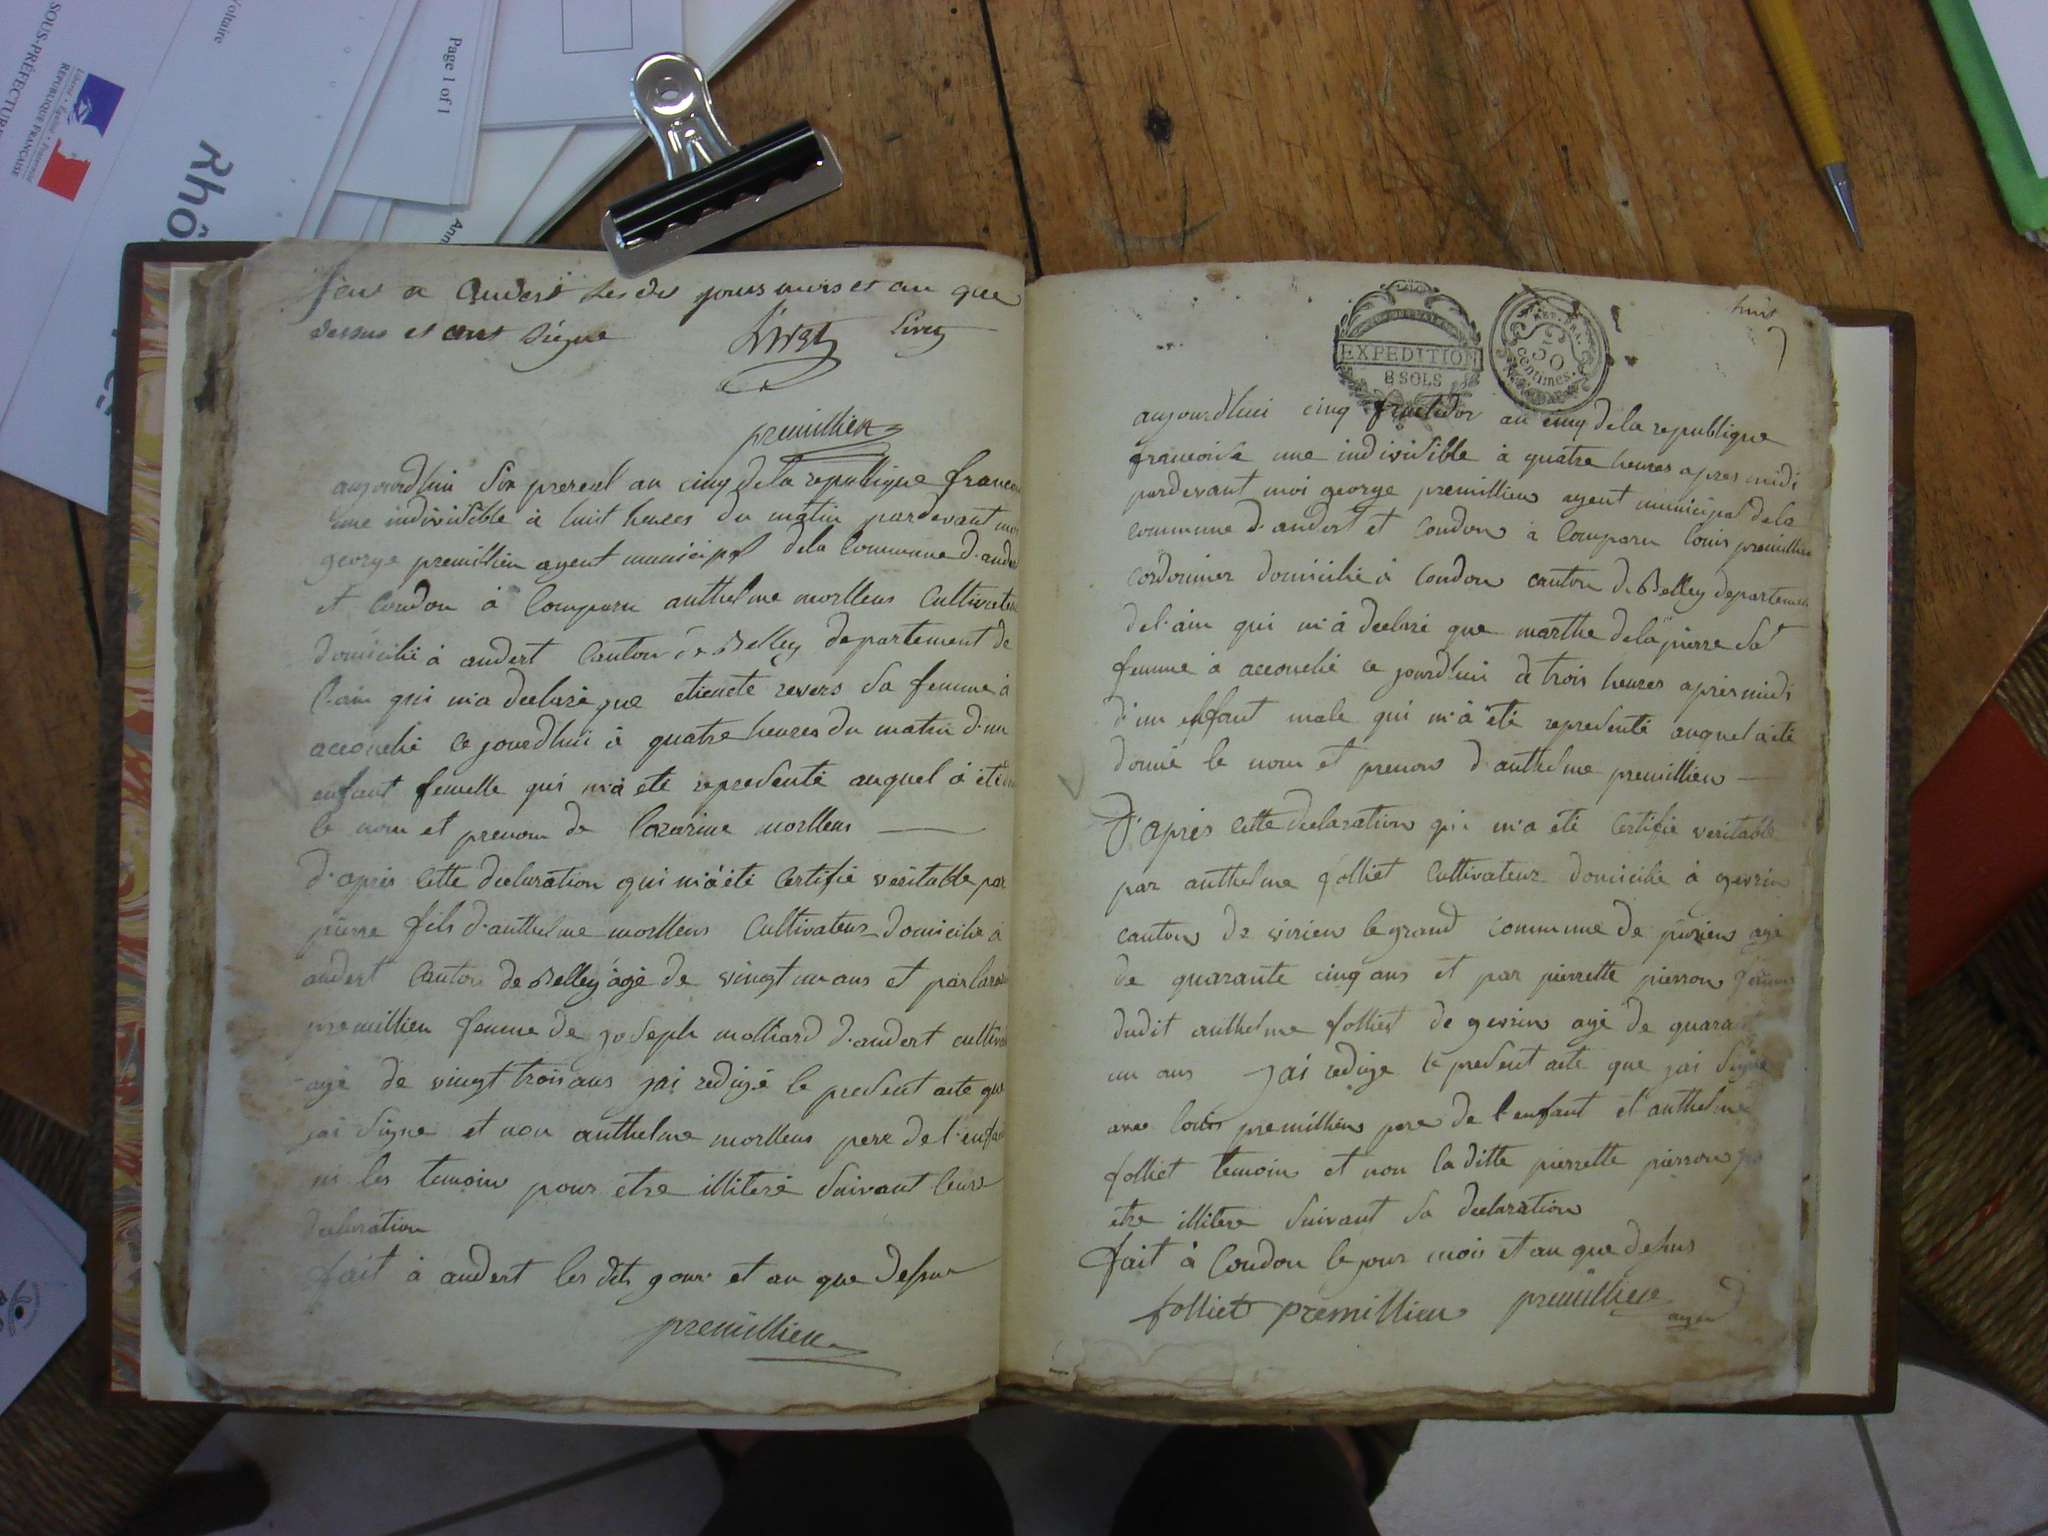 SOUS-PRÉFECTURE
Liberté • Égalité • Fraternité
RÉPUBLIQUE FRANÇAISE
Voltaire
Rhô
Page 1 of 1
Ann
a Andert les dis jours mois et an que
dessus et ont signe Livet Livet
premillien
aujourdhui six prereal an cinq de la republique francoi
une indivisible à huit heures du matin pardevant moi
george premillien agent municipal dela Commune d'ander
et Condon à Comparu anthelme morllens Cultivateu
domicilié à andert Canton de Belley departement de
l'ain qui m'a declaré que etienete revers sa femme à
accouché ce jourdhui à quatre heures du matin d'un
enfant femelle qui m'a eté representé auquel à été
le nom et prenom de Lazarine morllens
d'apres Cette declaration qui m'a été Certifié veritable par
pierre fils d'anthelme morllens Cultivateur domicilié à
andert Canton de Belley agé de vingt un ans et par
premillien femme de Joseph molliard d'andert cultiva
agé de vingt trois ans jai redigé le present acte que
jai signe et non anthelme morllens pere de l'enfa
ni les temoin pour etre illiteré suivant leurs
declaration
fait à andert les dits jour et an que dessus
premillien
huit
7
EXPEDITION
8 SOLS
REP. FRA.
50
centimes.
aujourdhui cinq fructidor an cinq dela republique
francoise une indivisible à quatre heures apres midi
pardevant moi george premillien agent municipal dela
commune d'andert et Condon à Comparu louis premillien
Cordonnier domicilié à Condon canton de Belley departemen
de l'ain qui m'à declaré que marthe delapierre sa
femme à accouché ce jourdhui à trois heures apres midi
d'un enfant male qui m'à été representé auquel à été
donné le nom et prenom d'anthelme premillien
D'apres Cette declaration qui m'a été Certifié veritable
par anthelme folliet Cultivateur domicilié à gevrin
canton de virieu legrand commune de agé
de quarante cinq ans et par pierrette pierron femme
dudit anthelme folliet de gevrin agé de quarant
un ans jai redigé le present acte que jai signe
avec louis premillien pere de l'enfant et anthelme
folliet temoin et non la ditte pierrette pierron
etre illitere suivant sa declaration
fait à Condon le jour mois et an que dessus
folliet premillien premillien agent